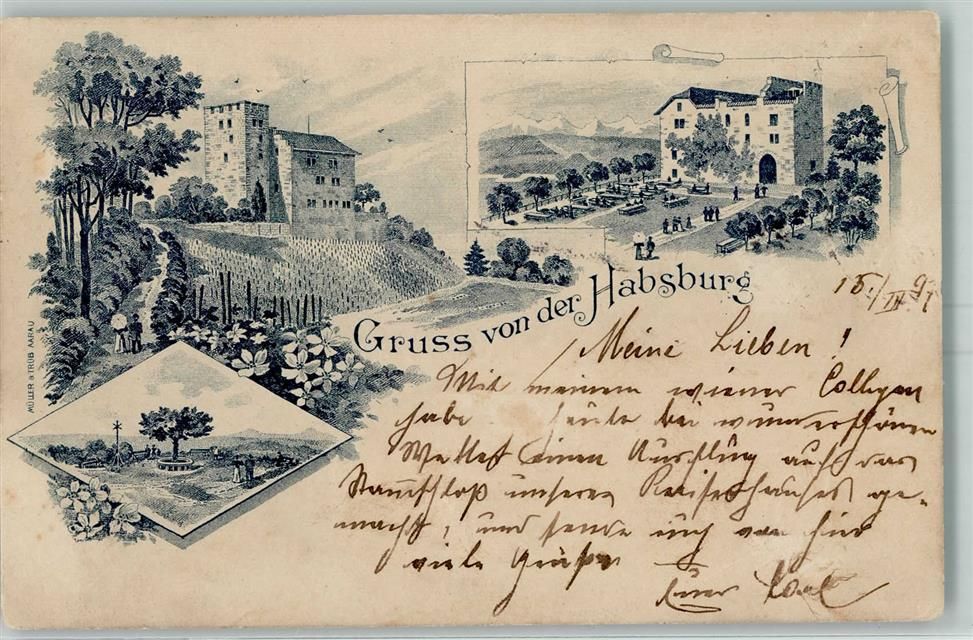 MÜLLER & TRÜB AARAU
Gruss von der Habsburg
15./IV 97
Meine Lieben!
Mit meinem wiener Collegen
habe heute bei wunderschönem
Wetter einen Ausflug auf das
Stammschloß unseres Kaiserhauses ge-
macht, und sende euch von hier
viele Grüße
Euer